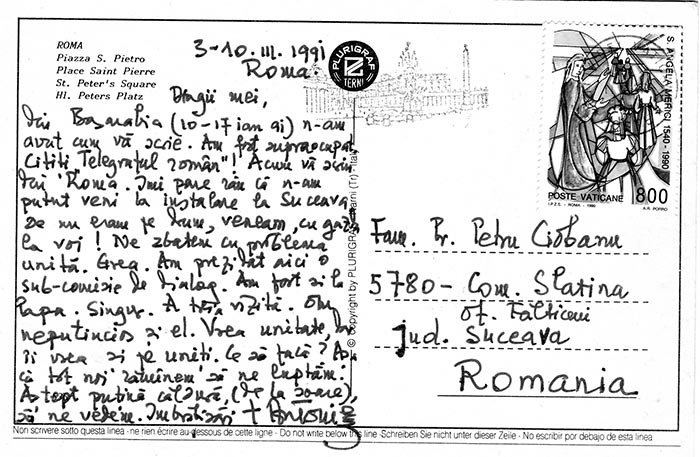 ROMA
Piazza S. Pietro
Place Saint Pierre
St. Peter's Square
Hl. Peters Platz
3-10.III.1991
Roma.
PLURIGRAF
TERNI
Dragii mei,
Din Basarabia (10-17 ian 91) n-am
avut cum vă scrie. Am fost supraocupat
Citiți "Telegraful român"! Acum vă scriu
din Roma. Îmi pare rău că n-am
putut veni la instalare la Suceava
De nu eram pe drum, veneam, cu gazda
la voi! Ne zbatem cu problema
unită. Grea. Am prezidat aici o
sub-comisie de dialog. Am fost și la
Papa. Singur. A treia vizită. Om
neputincios și el. Vrea unitate, dar
îi vrea și pe uniți. Ce să facă? Așa
că tot noi rămînem să ne luptăm.
Aștept puțină căldură, (de la soare),
să ne vedem. Îmbrățișări + Antonie
© Copyright by PLURIGRAF - Narni (Tr) - Italia
S. ANGELA MERICI 1540-1990
POSTE VATICANE 800
I.P.Z.S. - ROMA - 1990
Fam. Pr. Petru Ciobanu
5780 - Com. Slatina
of. Fălticeni
jud. Suceava
Romania
Non scrivere sotto questa linea - ne rien écrire au-dessous de cette ligne - Do not write below this line - Schreiben Sie nicht unter dieser Zeile - No escribir por debajo de esta linea